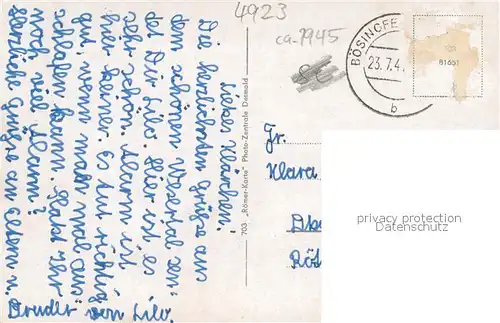 4923
ca. 1945
BÖSINGFE
23.7.4
b
81651
Liebes Klärchen!
Die herzlichsten Grüße aus
dem schönen Wesertal sen-
det Dir Lilo. Hier ist es
sehr schön. Alarm ist
hier keiner. Es tut richtig
gut, wenn man mal aus-
schlafen kann. Habt Ihr
noch viel Alarm?
Herzliche Grüße an Eltern u.
Bruder von Lilo.
703 „Römer-Karte" Photo-Zentrale Detmold
Fr.
Klara
privacy protection
Datenschutz